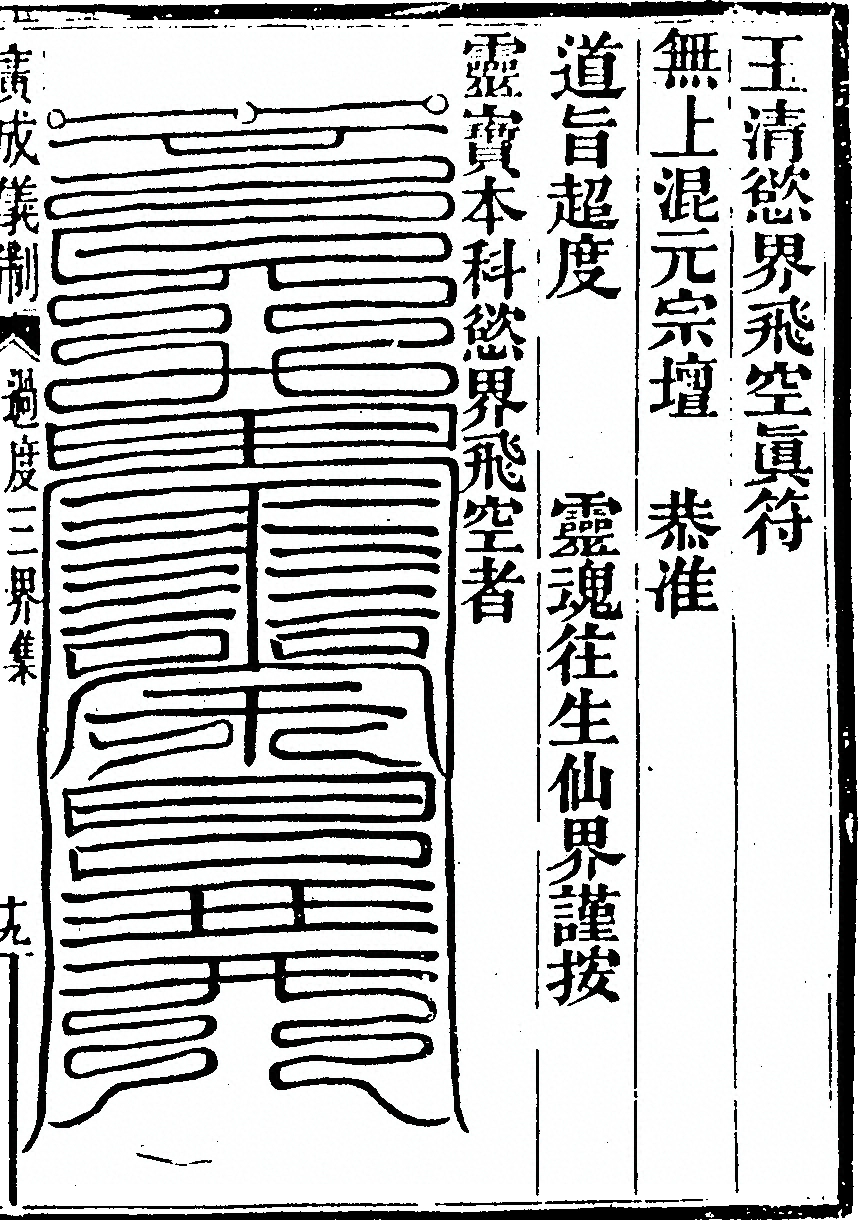 玉清慾界飛空眞符
無上混元宗壇 恭准
道旨超度 靈魂往生仙界謹按
靈寶本科慾界飛空者
廣成儀制 過度三界集 十九